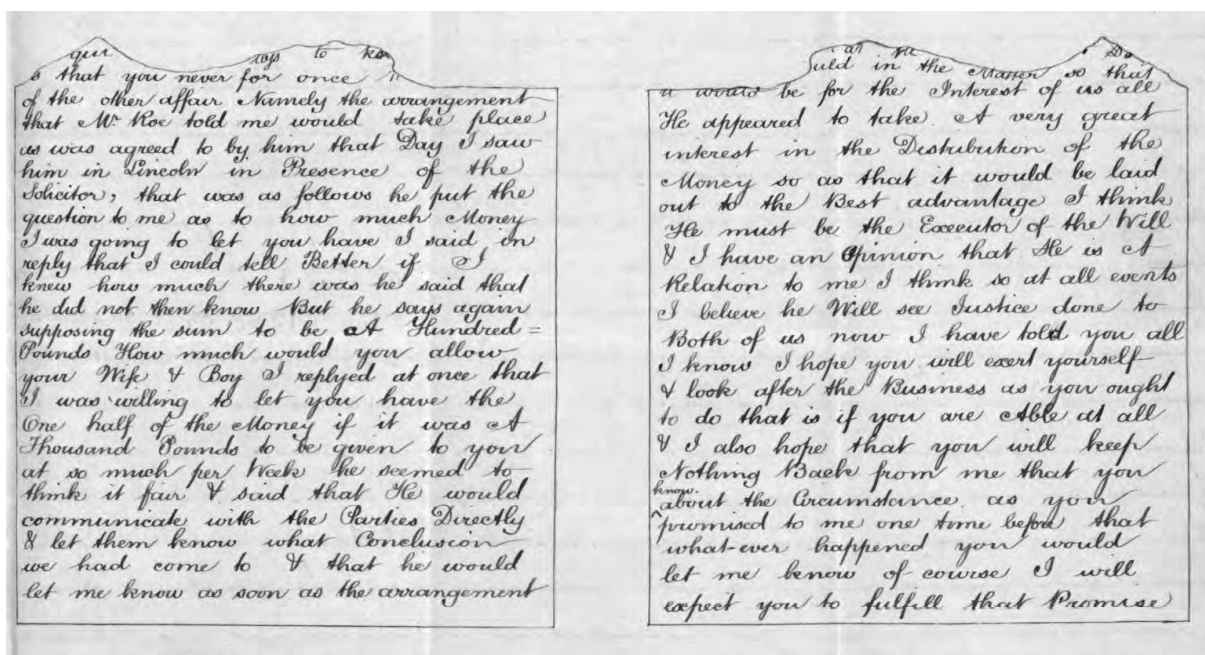 to
that you never for once
of the other affair Namely the arrangement
that Mr. Roe told me would take place
as was agreed to by him that Day I saw
him in Lincoln in Presence of the
Solicitor, that was as follows he put the
question to me as to how much Money
I was going to let you have I said in
reply that I could tell Better if I
knew how much there was he said that
he did not then know But he says again
supposing the sum to be A Hundred =
Pounds How much would you allow
your Wife & Boy I replyed at once that
I was willing to let you have the
One half of the Money if it was A
Thousand Pounds to be given to you
at so much per Week he seemed to
think it fair & said that He would
communicate with the Parties Directly
& let them know what Conclusion
we had come to & that he would
let me know as soon as the arrangement
at
in the Matter so that
it would be for the Interest of us all
He appeared to take A very great
interest in the Distribution of the
Money so as that it would be laid
out to the Best advantage I think
He must be the Executor of the Will
& I have an Opinion that He is A
Relation to me I think so at all events
I believe he Will see Justice done to
Both of us now I have told you all
I know I hope you will exert yourself
& look after the Business as you ought
to do that is if you are Able at all
& I also hope that you will keep
Nothing Back from me that you
know
about the Circumstance as you
promised to me one time before that
what-ever happened you would
let me know of course I will
expect you to fulfill that Promise